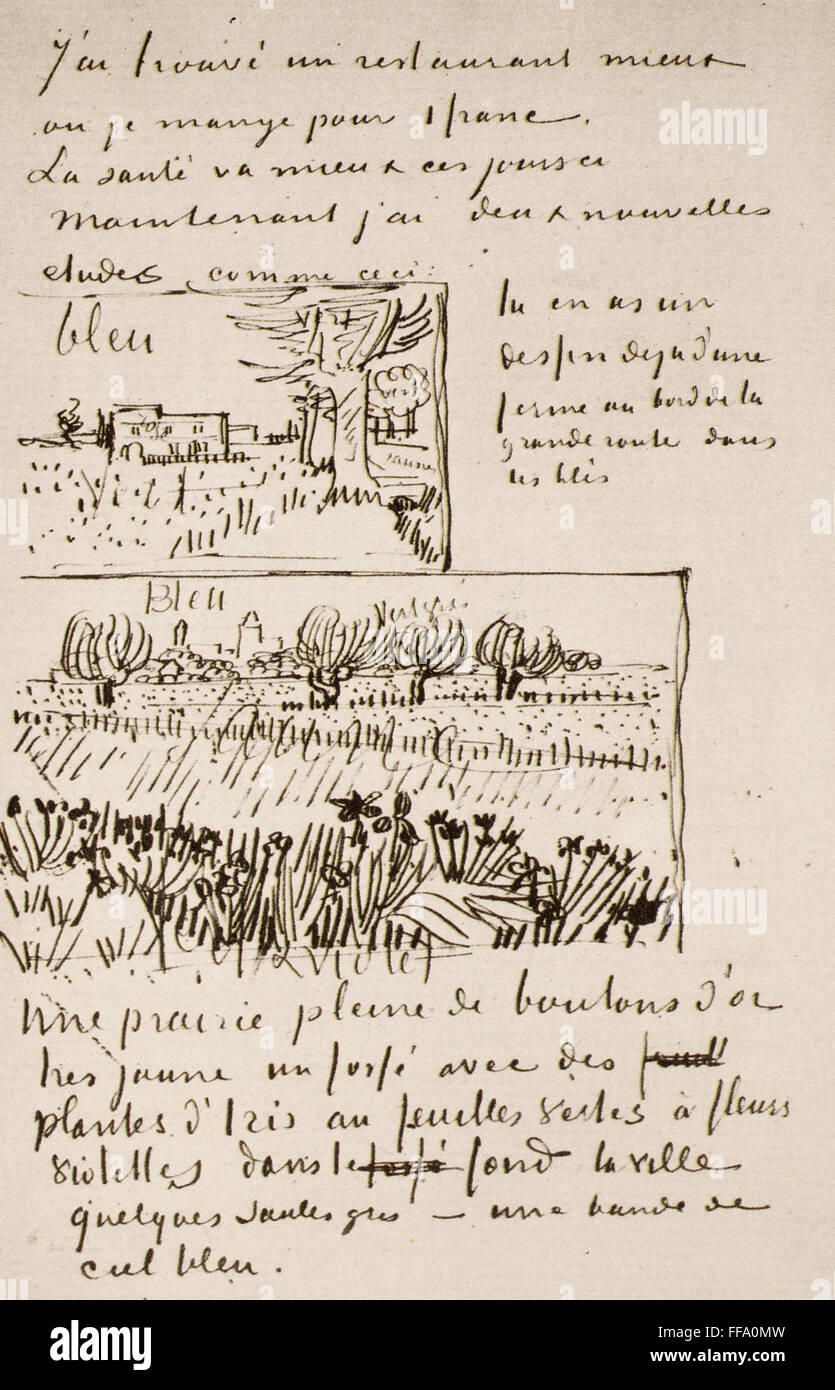 J'ai trouvé un restaurant mieux
ou je mange pour 1 franc.
La santé va mieux ces jours ci
Maintenant j'ai deux nouvelles
etudes comme ceci:
bleu
vert
jaune
tu en as un
dessin deja d'une
ferme au bord de la
grande route dans
les blés
Bleu
Vert gris
violet
Une prairie pleine de boutons d'or
tres jaune un fossé avec des
plantes d'Iris au feuilles vertes à fleurs
violettes dans le fossé fond la ville
quelques saules gris – une bande de
ciel bleu.
alamy
alamy
Image ID: FFA0MW
www.alamy.com